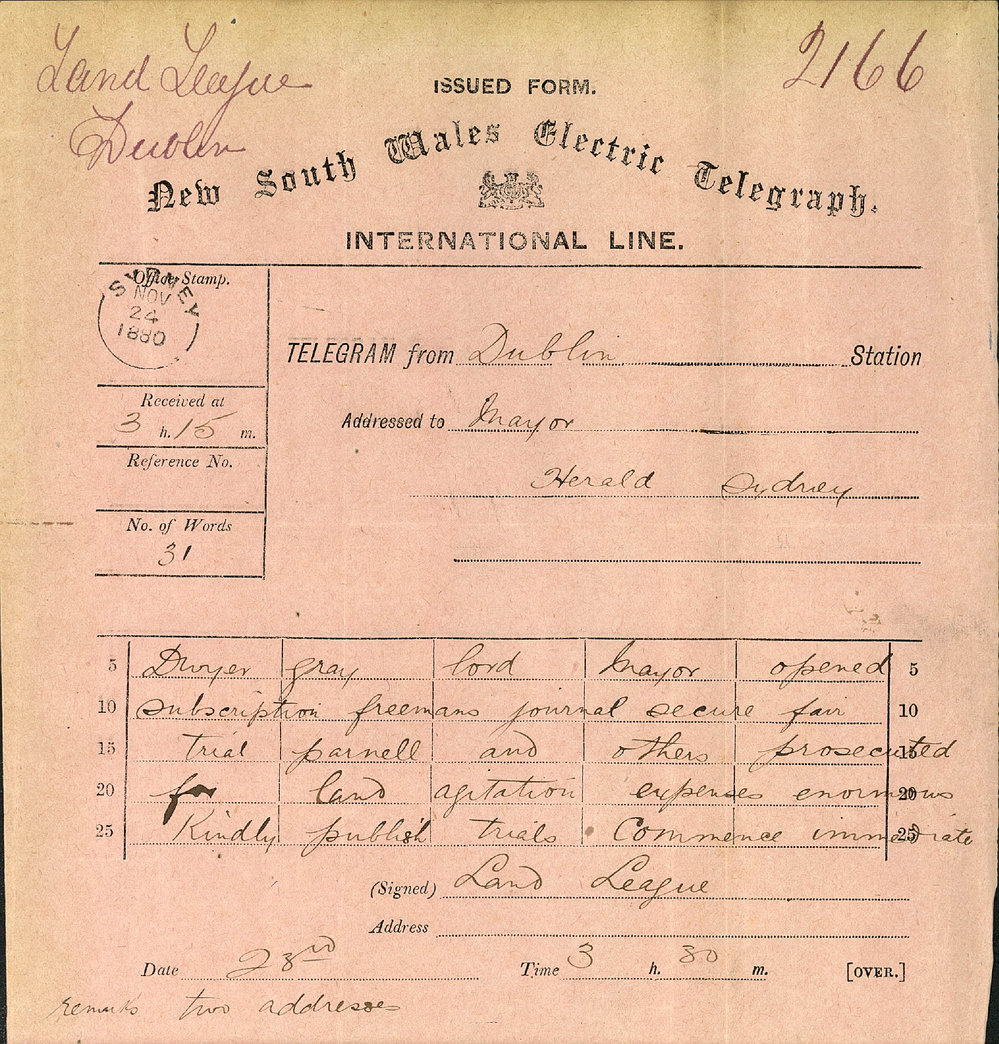 Land League
Dublin
2166
ISSUED FORM.
New South Wales Electric Telegraph.
INTERNATIONAL LINE.
Office Stamp.
SYDNEY
NOV
24
1880
TELEGRAM from Dublin Station
Received at
3 h. 15 m.
Addressed to Mayor
Herald Sydney
Reference No.
No. of Words
31
5 Dwyer gray lord Mayor opened 5
10 subscription freemans journal secure fair 10
15 trial parnell and others prosecuted 15
20 for land agitation expenses enormous 20
25 Kindly publish trials Commence immediate 25
(Signed) Land League
Address
Date 23rd Time 3 h. 30 m. [OVER.]
remarks two addresses